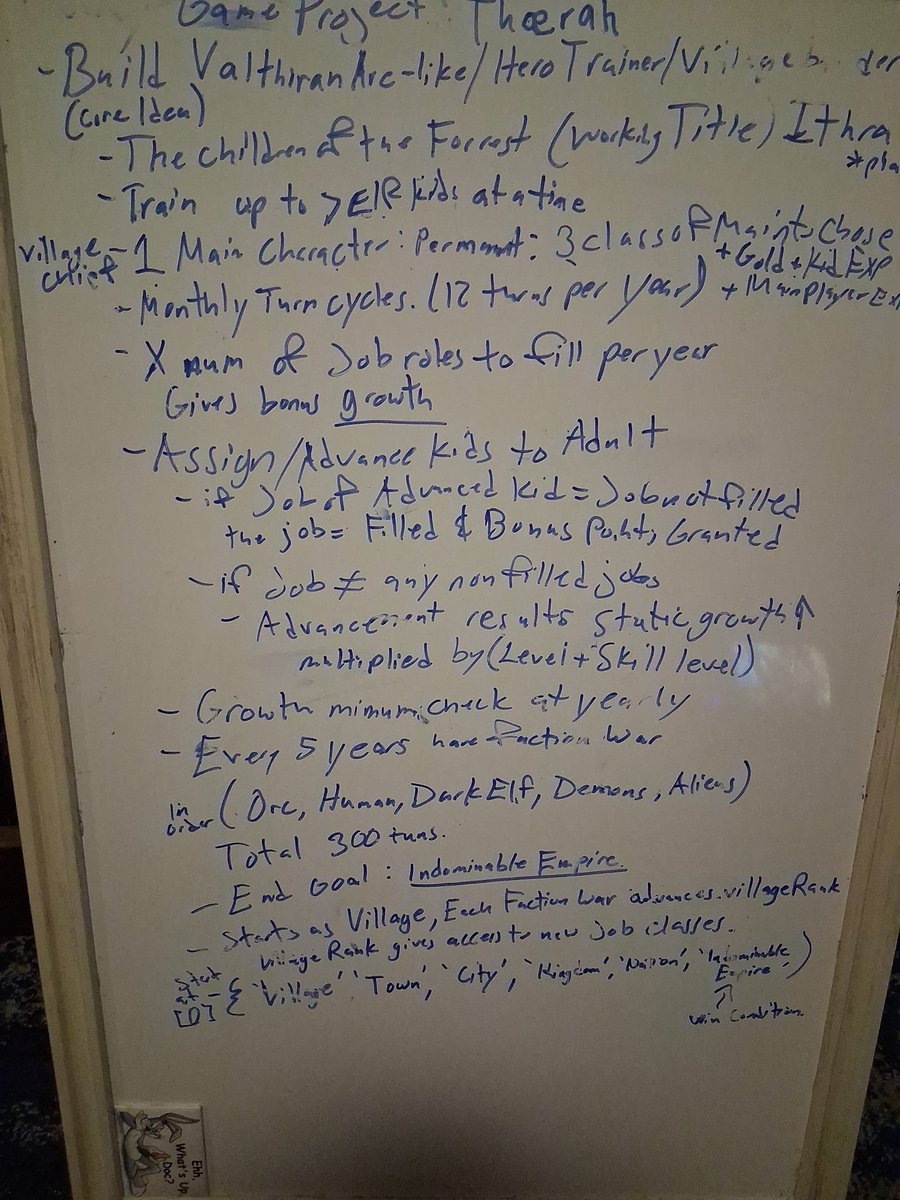 Game Project Thoerah
- Build Valthiran Arc-like/Hero Trainer/Village
(core Idea)
- The children of the Forrest (Working Title) Ithra
*pla
- Train up to > Elf kids at a time
village chief - 1 Main Character: Permanent: 3 class of Main to Chose
+ Gold + Kid EXP
- Monthly Turn cycles. (12 turns per year) + Main Player Ex
- X num of Job roles to fill per year
Gives bonus growth
- Assign/Advance kids to Adult
- if Job of Advanced kid = Job not filled
the job = Filled & Bonus Points Granted
- if Job ≠ any non filled jobs
- Advancement results static growth ↑
multiplied by (Level + Skill level)
- Growth mimum check at yearly
- Every 5 years have faction War
In order (Orc, Human, Dark Elf, Demons, Aliens)
Total 300 tuns.
- End Goal: Indominable Empire.
- Starts as Village, Each Faction War advances village Rank
village Rank gives access to new Job classes.
[0] - { 'Village' 'Town', 'City', 'Kingdom', 'Nation', 'Indominable Empire' )
↑
win Condition.
Ehh, What's Up, Doc?